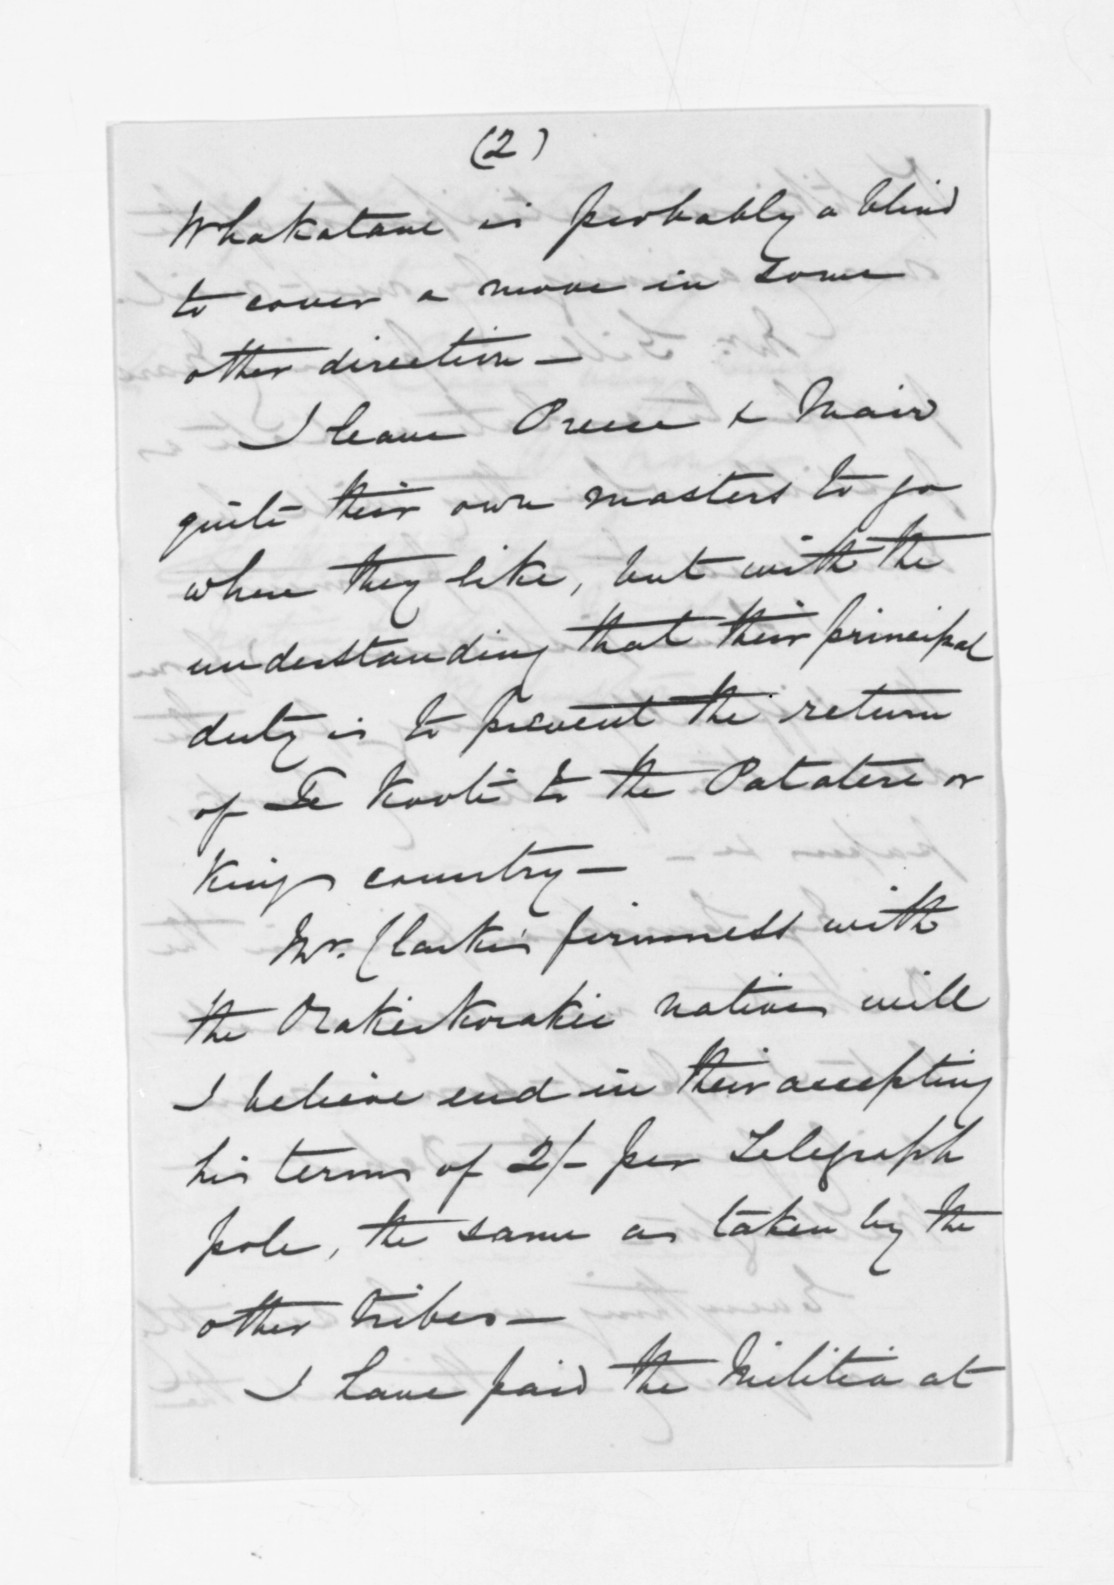 (2)
Whakatane is probably a blind
to cover a move in some
other direction —
I leave Preece & Mair
quite their own masters to go
where they like, but with the
understanding that their principal
duty is to prevent the return
of Te Kooti to the Patatere or
Kings country —
Mr. Clarke's firmness with
the Orakeikorakei natives will
I believe end in their accepting
his terms of 2/- per Telegraph
pole, the same as taken by the
other tribes —
I have paid the Militia at